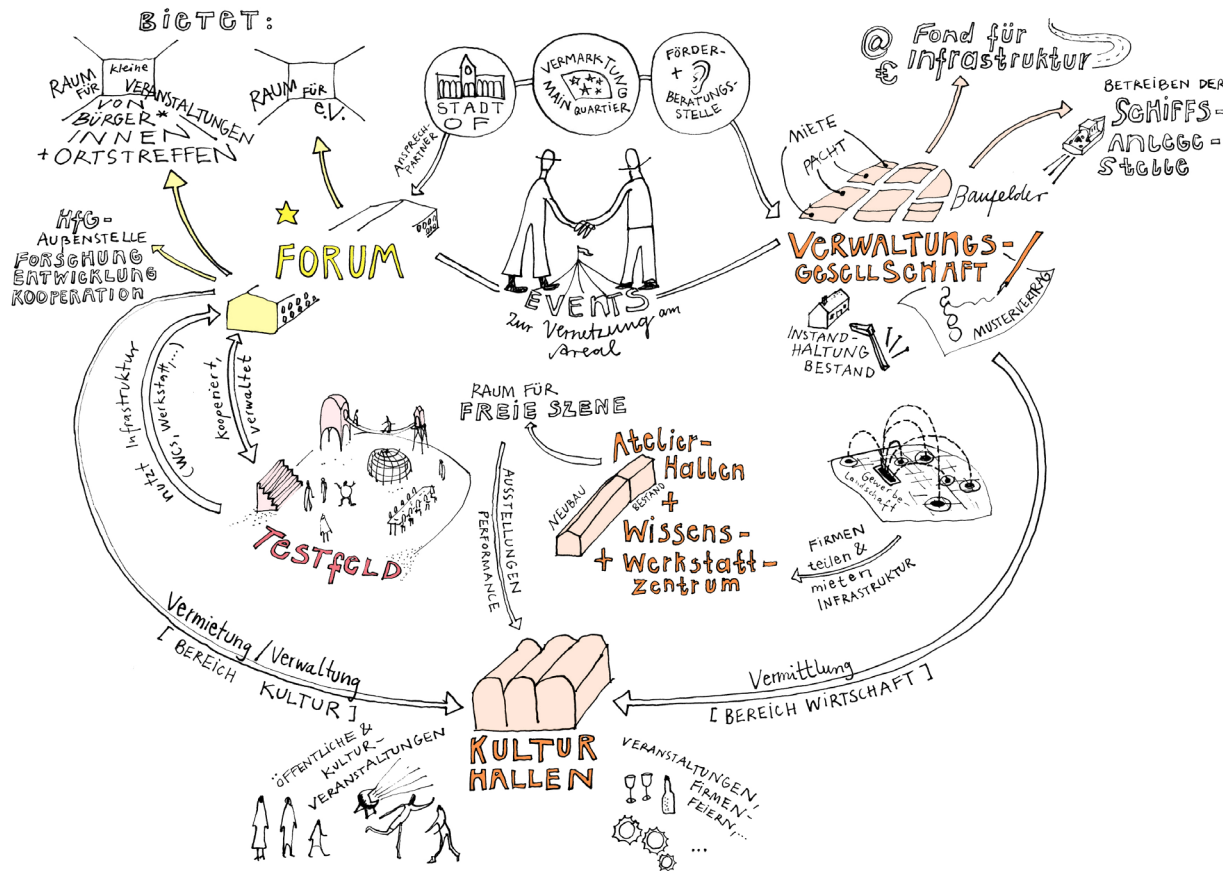 BIETET:
RAUM FÜR
kleine
VERANSTALTUNGEN
VON
BÜRGER*
INNEN
+ ORTSTREFFEN
RAUM FÜR
e.V.
STADT
OF
VERMARKTUNG
MAIN QUARTIER
FÖRDER-
+
BERATUNGS-
STELLE
@ Fond für
€ Infrastruktur
BETREIBEN DER
SCHIFFS-
ANLEGE-
STELLE
ANSPRECH-
PARTNER
MIETE
PACHT
Baufelder
HfG-
AUßENSTELLE
FORSCHUNG
ENTWICKLUNG
KOOPERATION
FORUM
EVENTS
Zur Vernetzung am
Areal
VERWALTUNGS-
GESELLSCHAFT
MUSTERVERTRAG
INSTAND-
HALTUNG
BESTAND
nutzt Infrastruktur
(WCs, Werkstatt,...)
kooperiert,
verwaltet
TESTFELD
RAUM FÜR
FREIE SZENE
AUSSTELLUNGEN
PERFORMANCE
Atelier-
Hallen
+
Wissens-
+ Werkstatt-
zentrum
NEUBAU
BESTAND
Gewerbe-
landschaft
FIRMEN
teilen &
mieten
INFRASTRUKTUR
Vermietung/Verwaltung
[BEREICH
KULTUR]
Vermittlung
[BEREICH WIRTSCHAFT]
KULTUR
HALLEN
ÖFFENTLICHE &
KULTUR-
VERANSTALTUNGEN
VERANSTALTUNGEN,
FIRMEN-
FEIERN,...
...